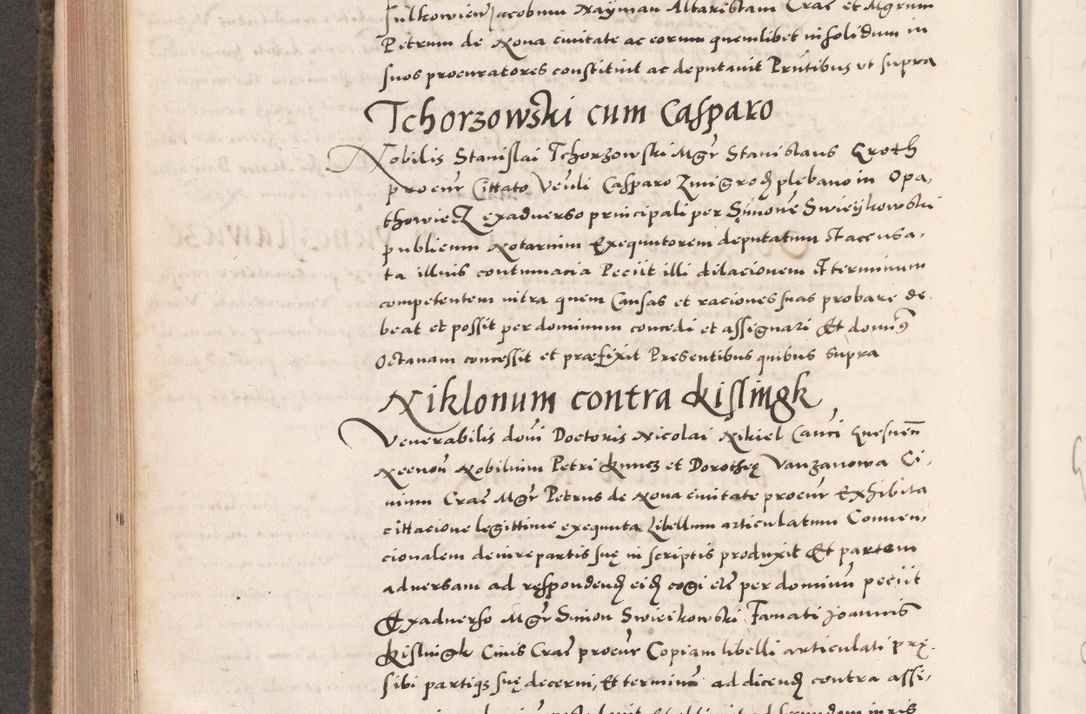 Sulkowien Jacobum Nayman Altaristam Crac et Mgrum
Petrum de Nova civitate ac eorum quemlibet insolidum in
suos procuratores constituit ac deputavit Pntibus vt supra
Tchorzowski cum Casparo
Nobilis Stanislai Tchorzowski Mgr Stanislaus Groth
procur Cittato Venli Casparo Zmigrod plebano in Opa,
thowiecz exadverso principali per Simone Swieijkowski
publicum Notarium Exequutorem deputatum Et accusa,
ta illius contumacia Peciit illi dilacionem et terminum
competentem intra quem Causas et raciones suas probare de,
beat et possit per dominum concedi et assignari Et domin9
Octavam concessit et praefixit Presentibus quibus supra
Niklonum contra Kislingk
Venerabilis domi Doctoris Nicolai Nikiel Canci Gnesnen
Necnon Nobilium Petri Kuncz et Dorothee Vanzanowa Ci,
vium Crac Mgr Petrus de Nova civitate procur Exhibita
cittacione legittime exequuta Libellum articulatum Conven,
cionalem de iure partis sue in scriptis produxit Et partem
adversam ad respondend eid cogi etc per dominum peciit
Exadverso Mgr Simon Swieikowski Famati Joannis
Kislingk Civis Crac procur Copiam libelli articulati pre,
sibi partiq3 sue decerni, Et terminum ad dicend contra assi,